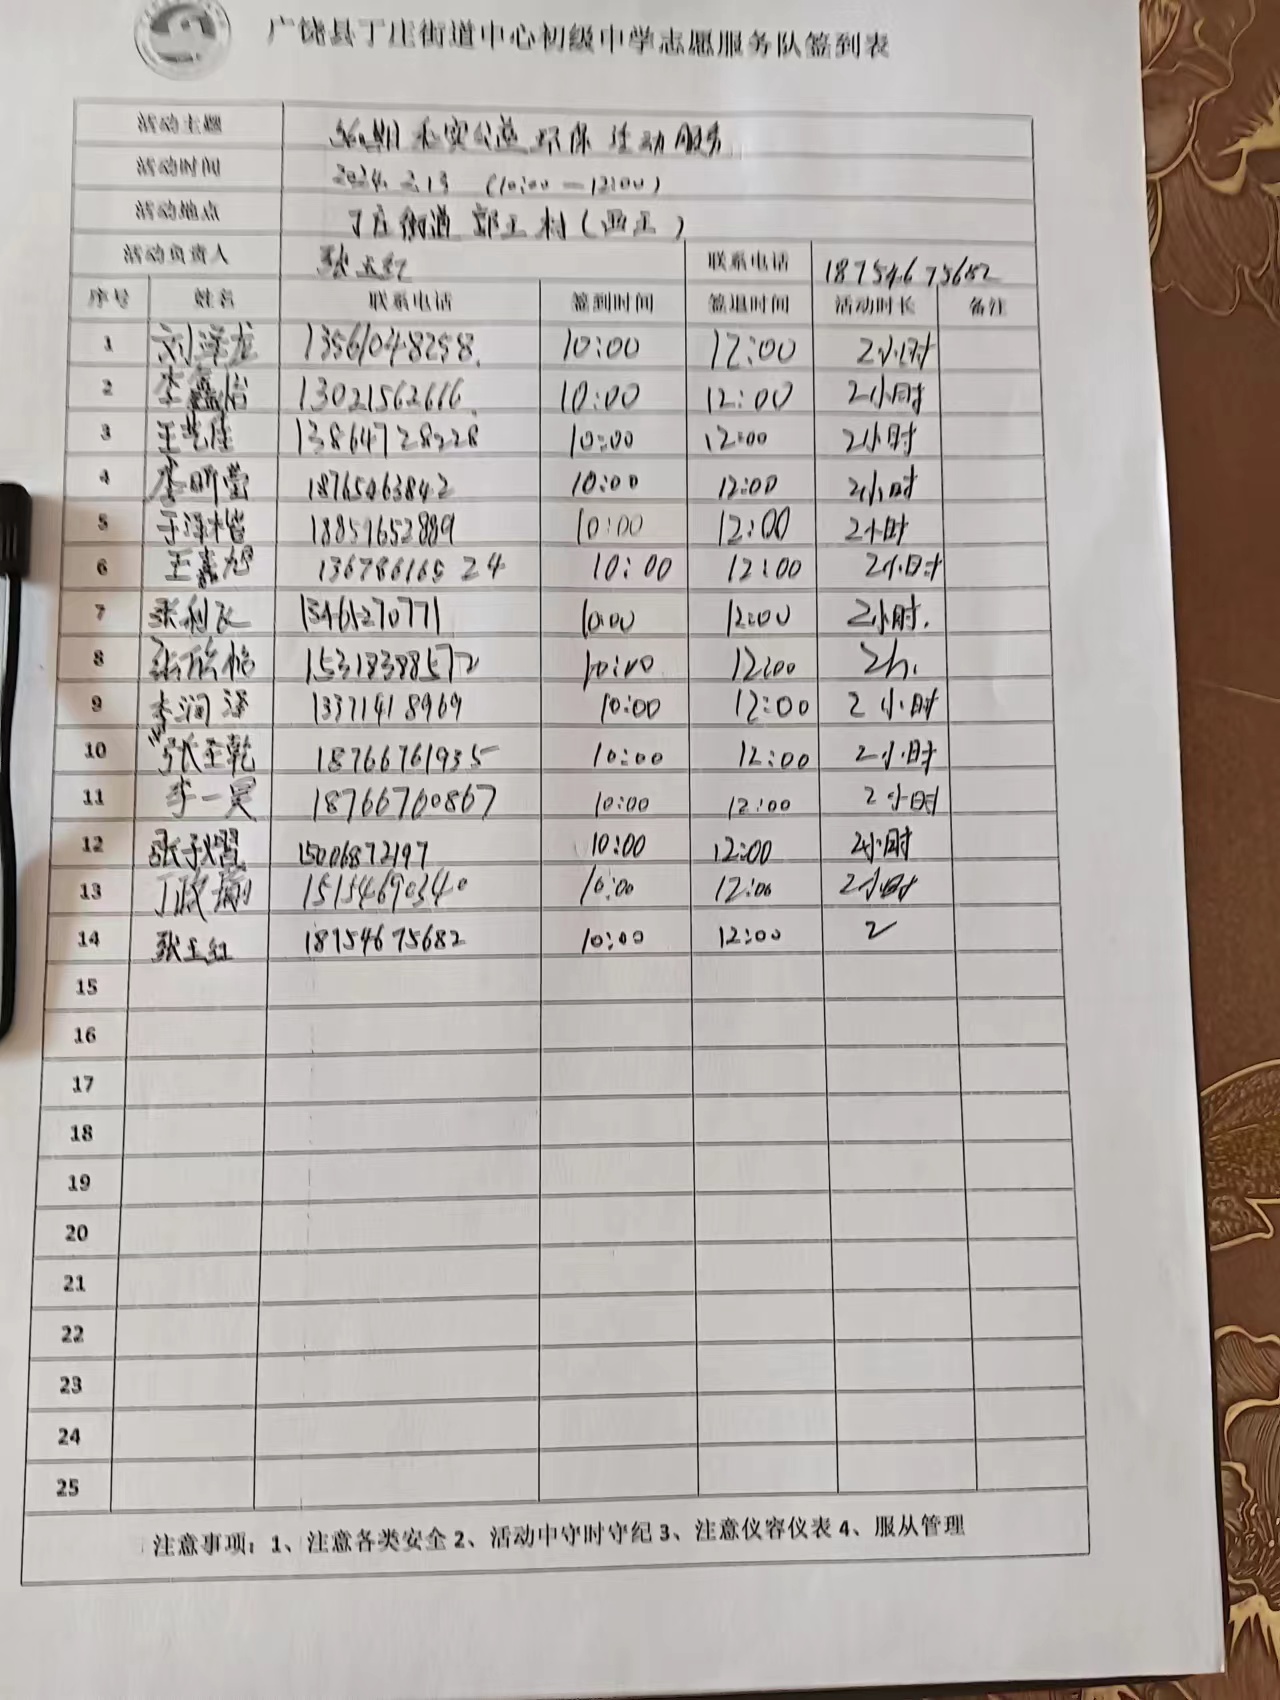 广饶县丁庄街道中心初级中学志愿服务队签到表
活动主题 环保活动服务
活动时间 2024.2.19 (10:00—12:00)
活动地点 丁庄街道 郭王村(西王)
活动负责人 张玉红 联系电话 18754675682
序号 姓名 联系电话 签到时间 签退时间 活动时长 备注
1 刘泽龙 13561048258 10:00 12:00 2小时
2 李鑫怡 13021562616 10:00 12:00 2小时
3 王艺佳 13864728228 10:00 12:00 2小时
4 李昕莹 18765063842 10:00 12:00 2小时
5 于泽楷 18851652889 10:00 12:00 2小时
6 王嘉旭 13678616524 10:00 12:00 2小时
7 张利民 13461270771 10:00 12:00 2小时.
8 张欣格 15318388572 10:00 12:00 2h.
9 李润泽 13371418969 10:00 12:00 2小时
10 张王乾 18766761935 10:00 12:00 2小时
11 李一昊 18766760867 10:00 12:00 2小时
12 张子熠 15006872197 10:00 12:00 2小时
13 丁政 15154690340 10:00 12:00 2小时
14 张玉红 18754675682 10:00 12:00 2
15
16
17
18
19
20
21
22
23
24
25
注意事项：1、注意各类安全 2、活动中守时守纪 3、注意仪容仪表 4、服从管理